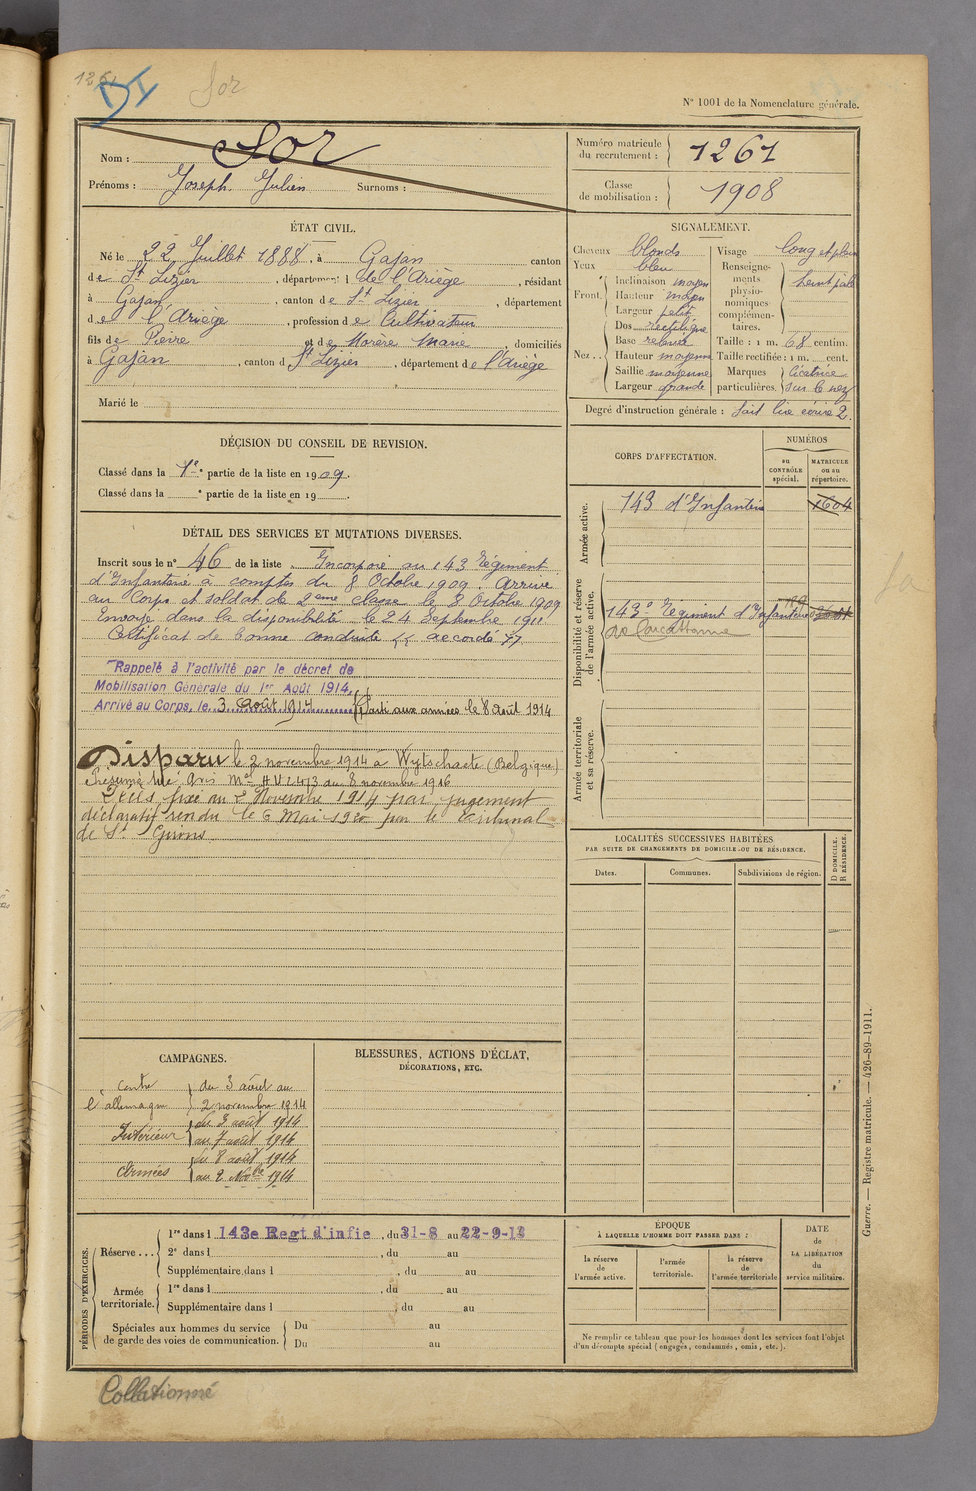 1261
DI
Sor
N° 1001 de la Nomenclature générale.
Nom : Sor
Prénoms : Joseph Julien Surnoms :
Numéro matricule du recrutement : 1261
Classe de mobilisation : 1908
ÉTAT CIVIL.
Né le 22 Juillet 1888, à Gajan canton
de St Lizier, département de l'Ariège, résidant
à Gajan, canton de St Lizier, département
de l'Ariège, profession de Cultivateur
fils de Pierre et de Morère Marie, domiciliés
à Gajan, canton de St Lizier, département de l'Ariège
Marié le
SIGNALEMENT.
Cheveux blonds
Yeux bleu
Front. Inclinaison moyen
Hauteur moyen
Largeur petit
Nez.. Dos rectiligne
Base relevée
Hauteur moyenne
Saillie moyenne
Largeur grande
Visage long et plein
Renseignements physionomiques complémentaires. teint pâle
Taille : 1 m. 68 centim.
Taille rectifiée : 1 m. cent.
Marques particulières. Cicatrice sur le nez
Degré d'instruction générale : sait lire écrire 2.
DÉCISION DU CONSEIL DE REVISION.
Classé dans la 1e partie de la liste en 1909.
Classé dans la e partie de la liste en 19 .
DÉTAIL DES SERVICES ET MUTATIONS DIVERSES.
Inscrit sous le n° 46 de la liste. Incorporé au 143 Régiment
d'Infanterie à compter du 8 Octobre 1909. Arrivé
au Corps et soldat de 2eme classe le 8 Octobre 1909
Envoyé dans la disponibilité le 24 Septembre 1911.
Certificat de bonne conduite "accordé".
Rappelé à l'activité par le décret de
Mobilisation Générale du 1er Août 1914,
Arrivé au Corps, le 3 août 1914 Parti aux armées le 8 août 1914
Disparu le 2 novembre 1914 à Wytschaete (Belgique)
Présumé tué Avis Mel HV 2473 du 8 novembre 1916
Décès fixé au 2 Novembre 1914 par jugement
déclaratif rendu le 6 Mai 1920 par le tribunal
de St Girons
CORPS D'AFFECTATION.
NUMÉROS
au CONTRÔLE spécial.
MATRICULE ou au répertoire.
Armée active.
143 d'Infanterie 1604
Disponibilité et réserve de l'armée active.
143e Régiment d'Infanterie
de Carcassonne
Armée territoriale et sa réserve.
LOCALITÉS SUCCESSIVES HABITÉES
PAR SUITE DE CHANGEMENTS DE DOMICILE OU DE RÉSIDENCE.
Dates. Communes. Subdivisions de région.
D DOMICILE. R RÉSIDENCE.
CAMPAGNES.
Contre l'allemagne du 3 août au 2 novembre 1914
Intérieur du 3 août 1914 au 7 août 1914
Armées du 8 août 1914 au 2 Novbre 1914
BLESSURES, ACTIONS D'ÉCLAT,
DÉCORATIONS, ETC.
PÉRIODES D'EXERCICES.
Réserve... 1re dans l 143e Regt d'infie, du 31-8 au 22-9-12
2e dans l , du au
Supplémentaire dans l , du au
Armée territoriale. 1re dans l , du au
Supplémentaire dans l , du au
Spéciales aux hommes du service de garde des voies de communication. Du au
Du au
ÉPOQUE
À LAQUELLE L'HOMME DOIT PASSER DANS :
la réserve de l'armée active.
l'armée territoriale.
la réserve de l'armée territoriale
DATE de LA LIBÉRATION du service militaire.
Ne remplir ce tableau que pour les hommes dont les services font l'objet
d'un décompte spécial (engagés, condamnés, omis, etc.).
Guerre. — Registre matricule. — 426-89-1911.
Collationné